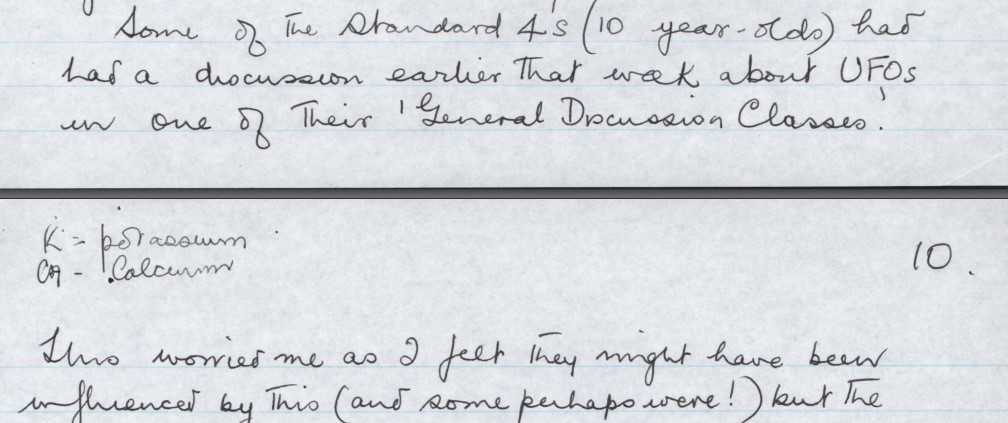 Some of the Standard 4's (10 year-olds) had
had a discussion earlier that week about UFOs
in one of their 'General Discussion Classes'.
K = potassium
CA - Calcium
10.
This worried me as I felt they might have been
influenced by this (and some perhaps were!) but the